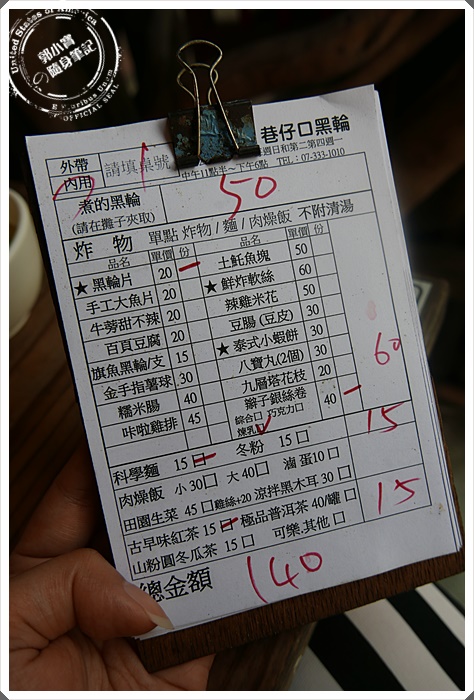 United States of America
郭小寶
の隨身筆記
E Pluribus Unum
OFFICIAL SEAL
巷仔口黑輪
週日和第二第四週一
中午11點半~下午6點 TEL:07-333-1010
外帶 請填桌號 1
內用
煮的黑輪 50
(請在攤子夾取)
炸物 單點 炸物/麵/肉燥飯 不附清湯
品名 單價 份 品名 單價 份
★黑輪片 20 — 土魠魚塊 50
手工大魚片 20 ★鮮炸軟絲 60
牛蒡甜不辣 20 辣雞米花 50
百頁豆腐 20 豆腸(豆皮) 30
旗魚黑輪/支 15 ★泰式小蝦餅 30
金手指薯球 30 八寶丸(2個) 30
糯米腸 40 九層塔花枝 20
咔啦雞排 45 辮子銀絲卷 40 —
綜合口 巧克力口
煉乳 ✓
60
科學麵 15 □ 冬粉 15 □ 15
肉燥飯 小30□ 大40□ 滷蛋10□
田園生菜 45 □雞絲+20 涼拌黑木耳 30 □
古早味紅茶 15 □ 極品普洱茶 40/罐 □ 15
山粉圓冬瓜茶 15 □ 可樂.其他 □
總金額 140